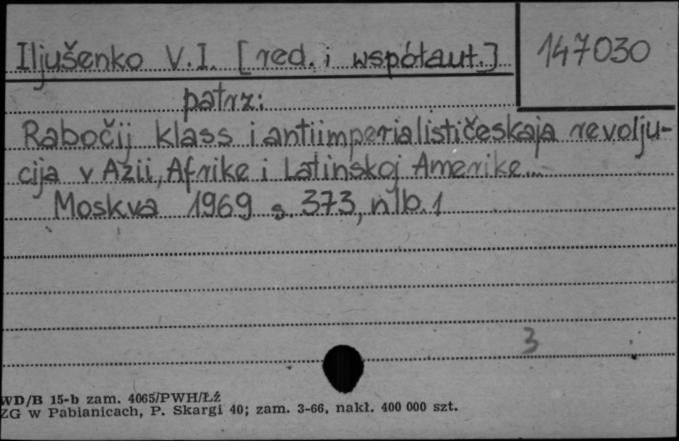 Iljušenko V. I. [red. i współaut.]
147030
patrz:
Rabočij klass i antiimperialističeskaja revolju-
cija v Azii, Afrike i Latinskoj Amerike...
Moskva 1969 s. 373, nlb. 1
3
WD/B 15-b zam. 4065/PWH/Łź
ZG w Pabianicach, P. Skargi 40; zam. 3-66, nakł. 400 000 szt.